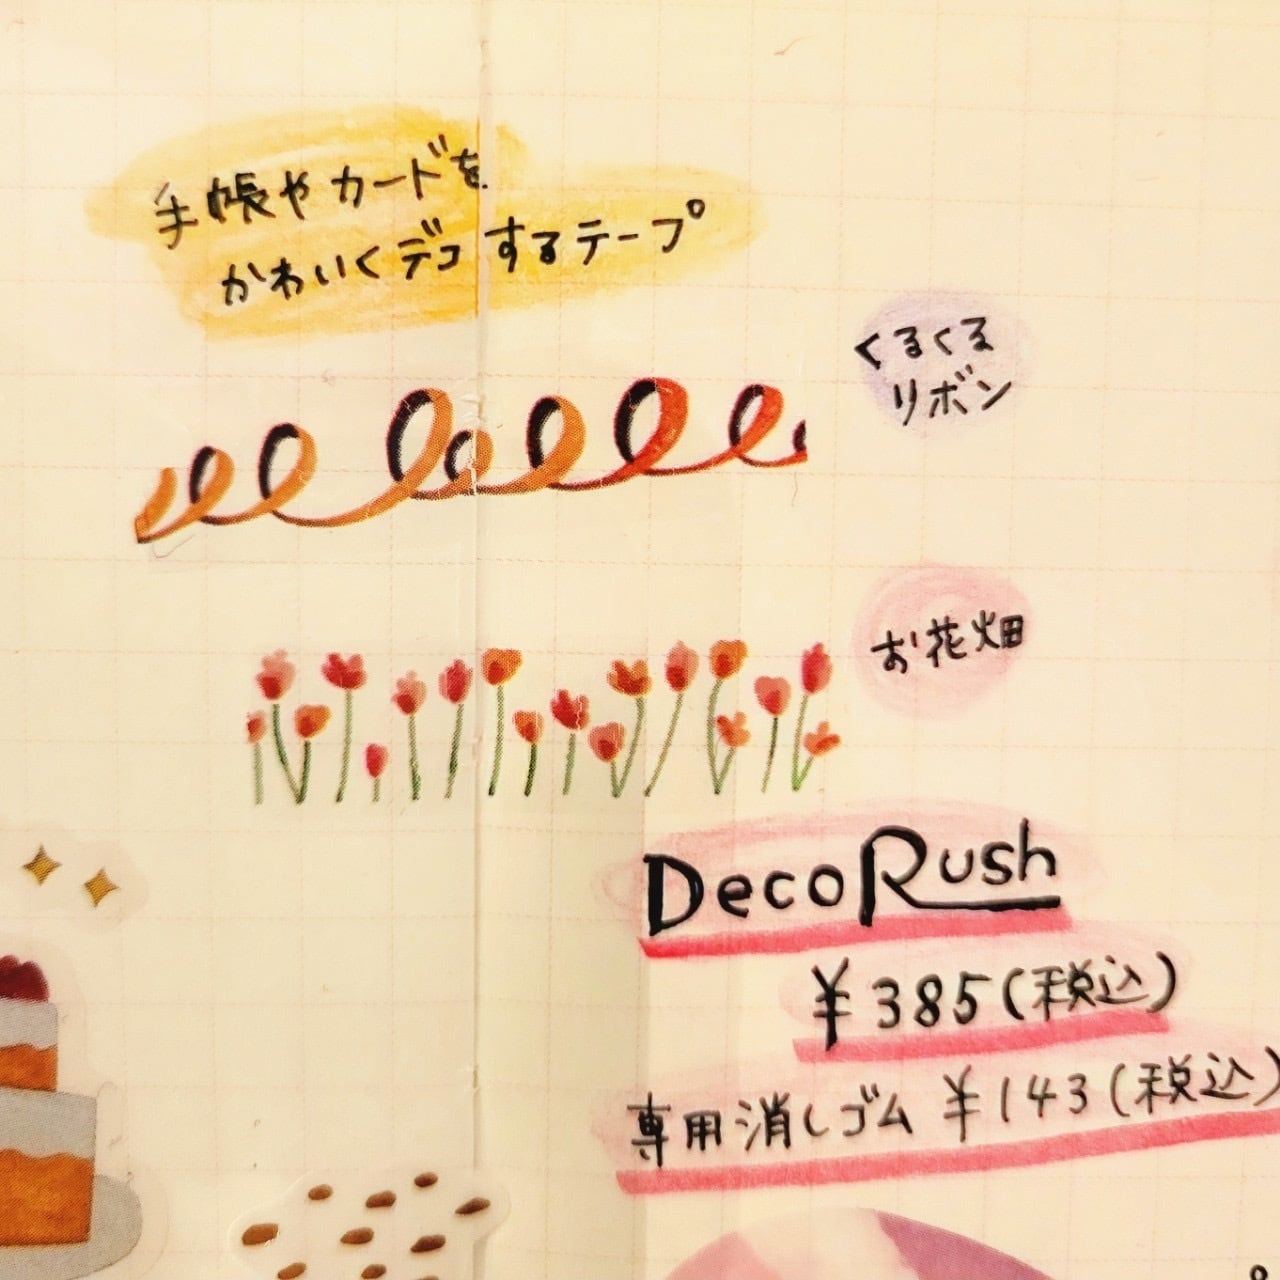 手帳やカードを
かわいくデコするテープ
くるくる
リボン
お花畑
DecoRush
¥385(税込)
専用消しゴム ¥143(税込)